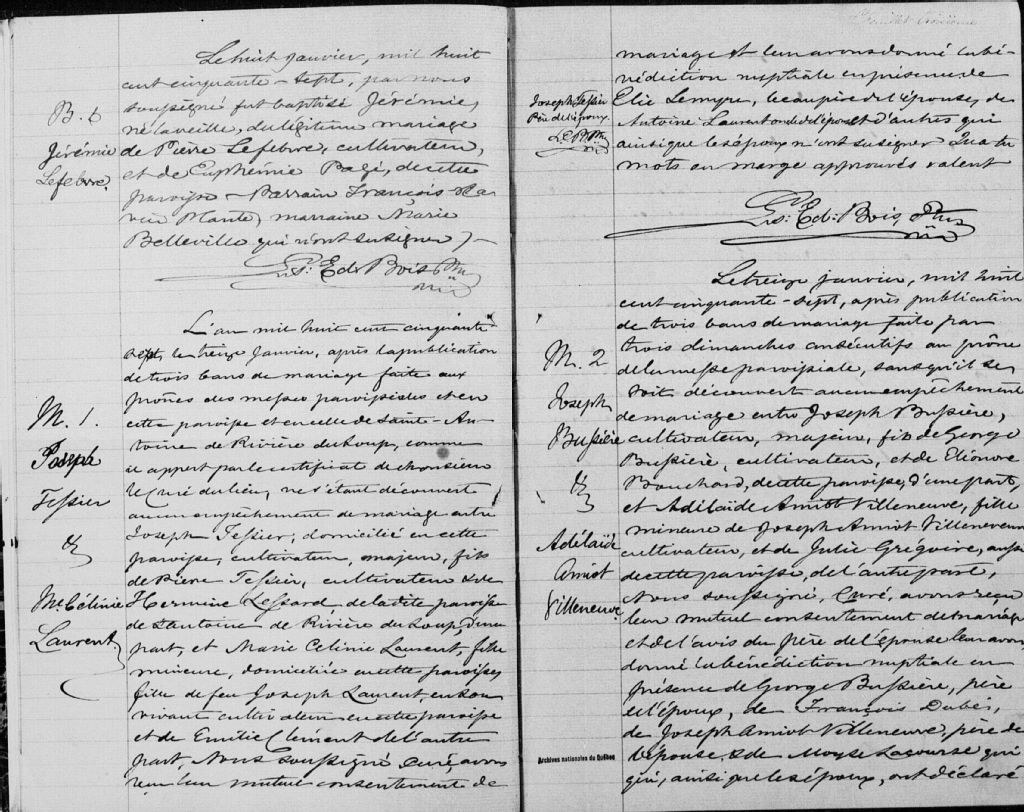 B. 6
Jérémie
Lefebvre.
Le huit janvier, mil huit
cent cinquante-sept, par nous
soussigné fut baptisé Jérémie,
né la veille, du légitime mariage
de Pierre Lefebvre, cultivateur,
et de Euphémie Pagé, de cette
paroisse - Parrain François
Plante, marraine Marie
Belleville qui n'ont su signer
Ls. Ed. Bois Ptre
M. 1.
Joseph
Tessier
&
Me Célinie
Laurent
L'an mil huit cent cinquante-
sept, le treize Janvier, après la publication
de trois bans de mariage faite aux
prônes des messes paroissiales et en
cette paroisse et en celle de Saint-An-
toine de Rivière du Loup, comme
il appert par le certificat de Monsieur
le Curé du lieu, ne s'étant découvert
aucun empêchement de mariage entre
Joseph Tessier, domicilié en cette
paroisse, cultivateur, majeur, fils
de Pierre Tessier, cultivateur & de
Hermine Lessard, de la dite paroisse
de St Antoine de Rivière du Loup, d'une
part, et Marie Celinie Laurent, fille
mineure, domiciliée en cette paroisse,
fille de feu Joseph Laurent, en son
vivant cultivateur en cette paroisse
et de Emilie Clément de l'autre
part, Nous soussigné Curé, avons
reçu leur mutuel consentement de
Feuillet troisième
mariage et leur avons donné la bé-
nédiction nuptiale en présence de
Joseph Tessier
Père de l'époux.
L. E. B. Ptre
Elie Lemyre, beau père de l'épouse, de
Antoine Laurent oncle de l'épouse et d'autres qui
ainsi que les époux n'ont su signer Quatre
mots en marge approuvés valent
Ls. Ed. Bois, Ptre
M. 2
Joseph
Bussière
&
Adélaïde
Amiot
Villeneuve
Le treize janvier, mil huit
cent cinquante-sept, après publication
de trois bans de mariage faite par
trois dimanches consécutifs au prône
de la messe paroissiale, sans qu'il se
soit découvert aucun empêchement
de mariage entre Joseph Bussière,
cultivateur, majeur, fils de George
Bussière, cultivateur, et de Eléonore
Bouchard, de cette paroisse, d'une part,
et Adélaïde Amiot Villeneuve, fille
mineure de Joseph Amiot Villeneuve
cultivateur, et de Julie Grégoire, aussi
de cette paroisse, de l'autre part,
Nous soussigné, Curé, avons reçu
leur mutuel consentement de mariage
et de l'avis du père de l'épouse leur avons
donné la bénédiction nuptiale en
présence de George Bussière, père
de l'époux, de François Dubés,
de Joseph Amiot Villeneuve, père de
l'épouse & de Moyse Lacourse qui
qui, ainsi que les époux, ont déclaré
Archives nationales du Québec